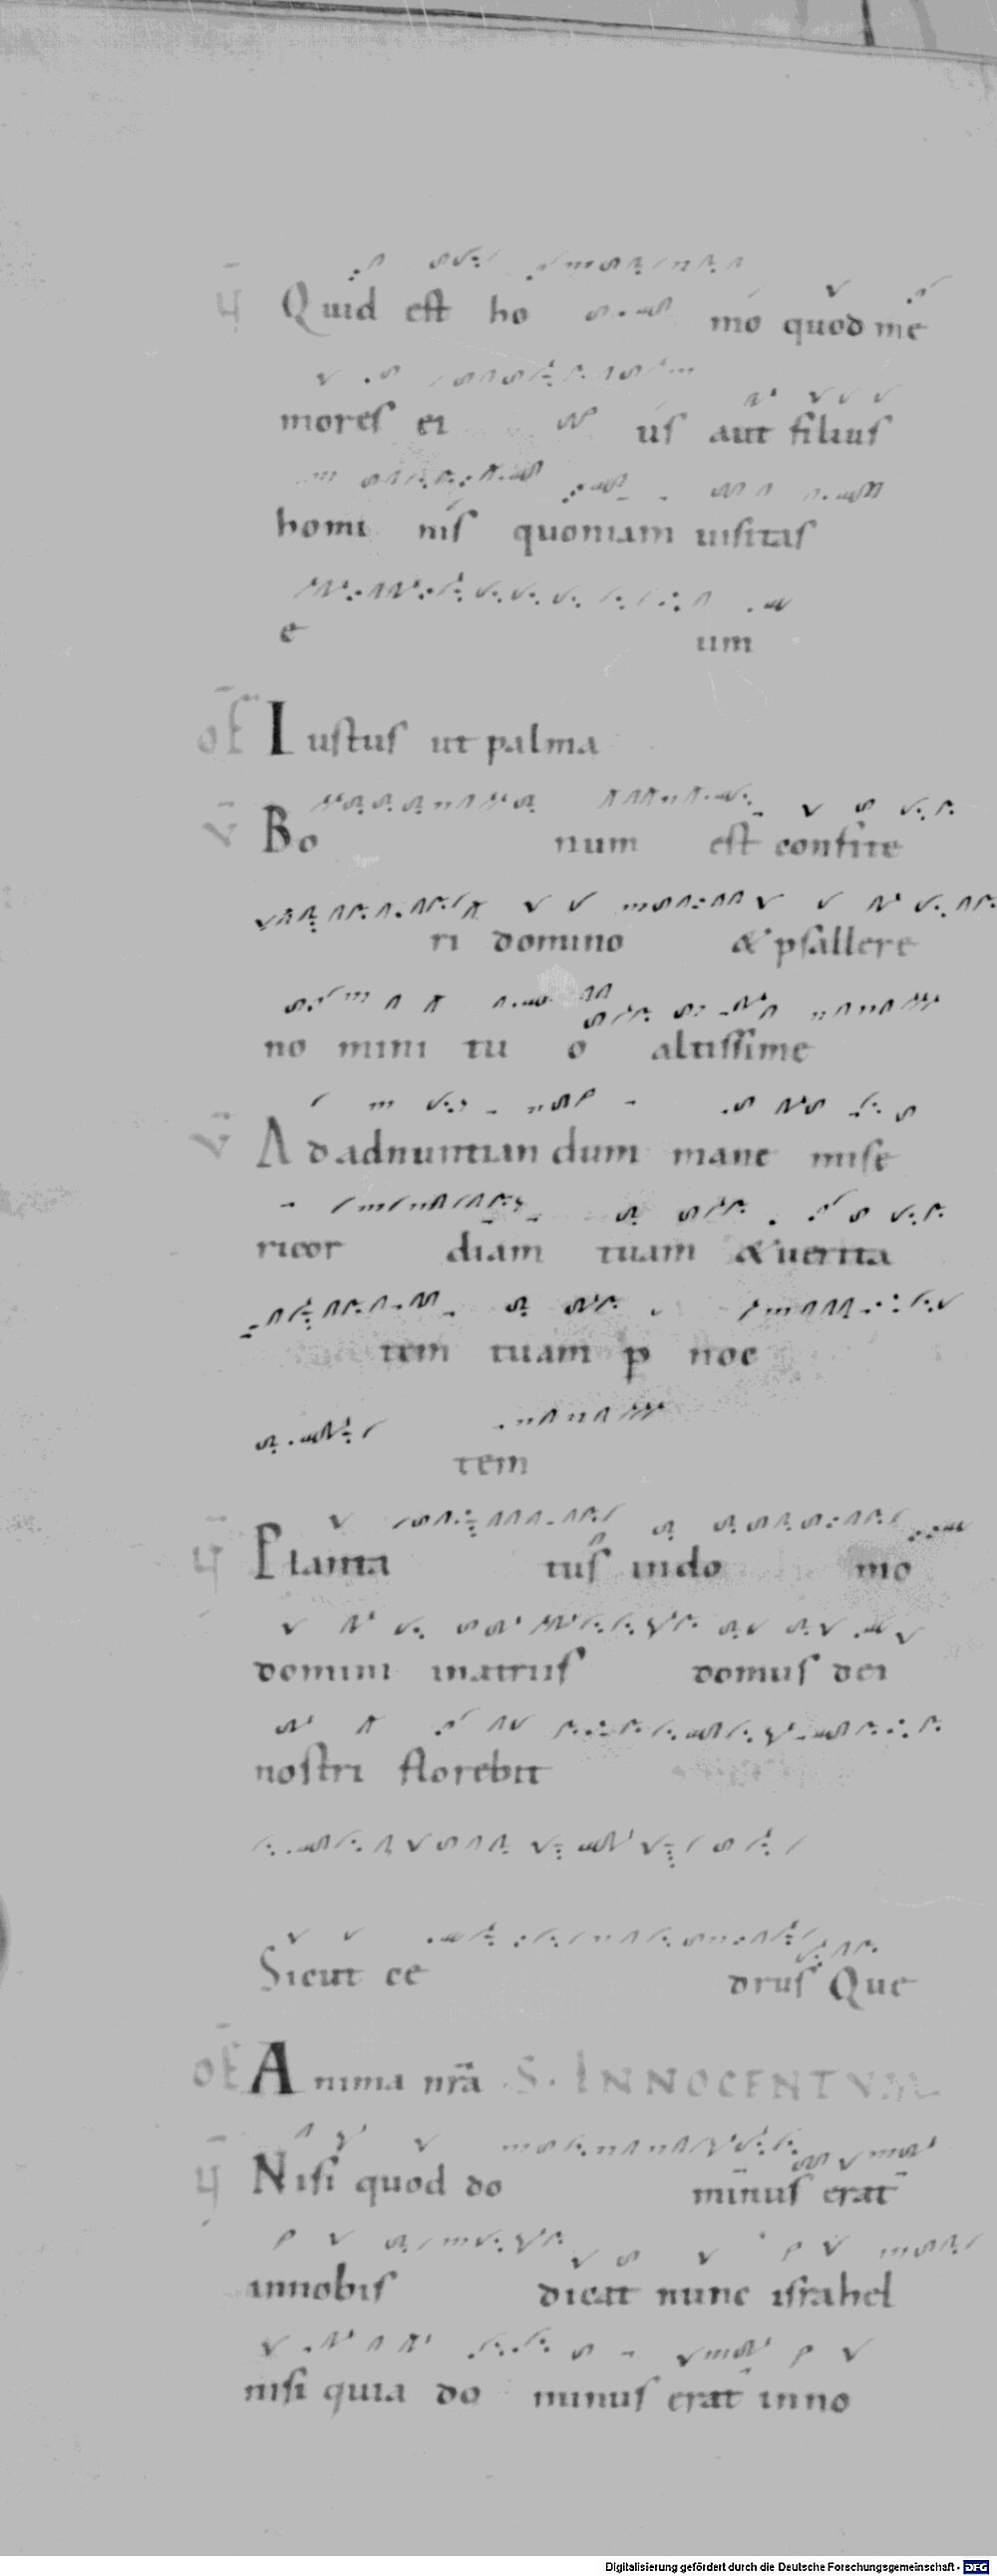 Quid est ho mo quod me
mores ei us aut filius
homi nis quoniam uisitas
e um
OF Iustus ut palma
V Bo num est confite
ri domino & psallere
no mini tu o altissime
V Ad adnuntian dum mane mise
ricor diam tuam & uerita
tem tuam p noc
tem
Planta tus indo mo
domini inatriis domus dei
nostri florebit
Sicut ce drus Que
OF Anima nrā S. INNOCENTVM
Nisi quod do minus erat
innobis dicat nunc israhel
nisi quia do minus erat inno
Digitalisierung gefördert durch die Deutsche Forschungsgemeinschaft - DFG